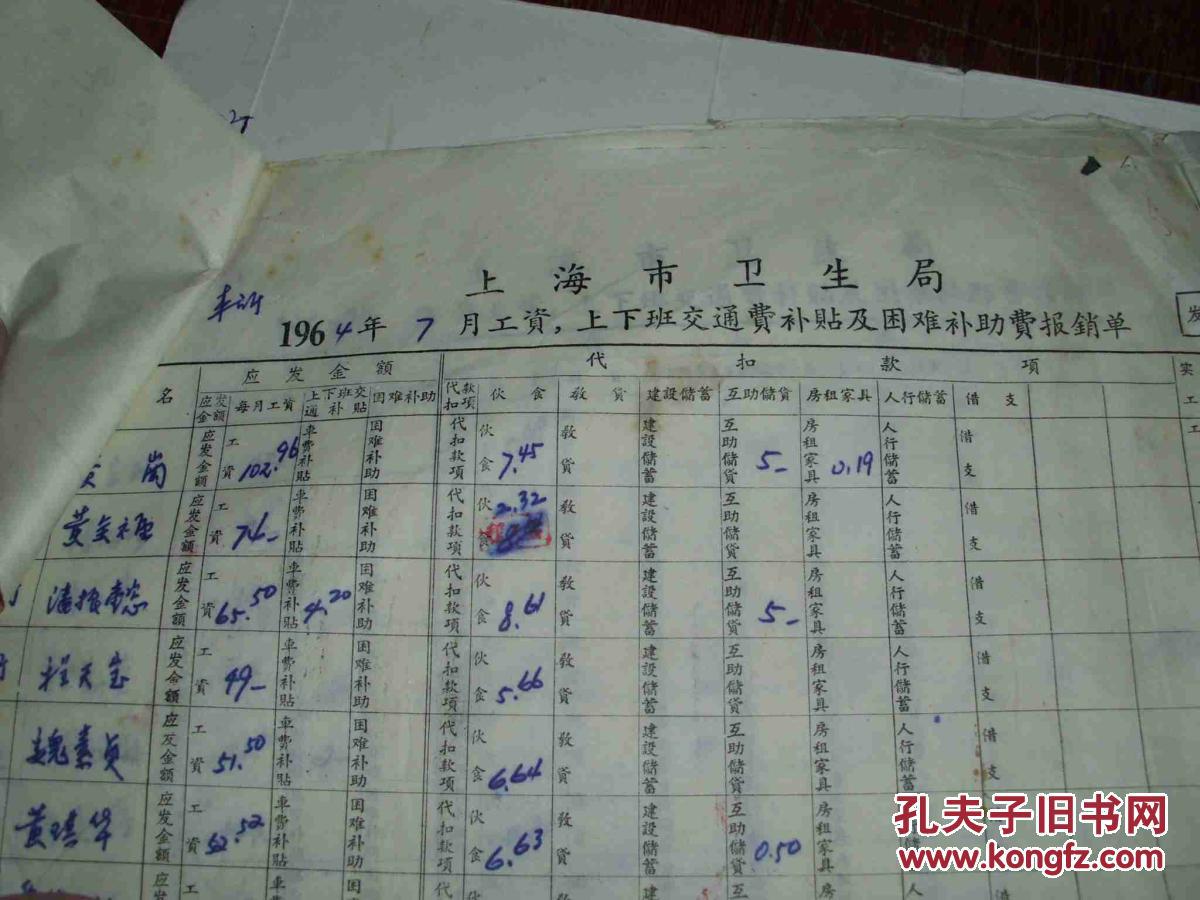 上海市卫生局
1964年7月工资,上下班交通費补貼及困难补助費报銷单
发
名 应发金額 代扣款項 实
应发金額 每月工資 上下班交通补貼 困难补助 代扣款項 伙食 敎貸 建設儲蓄 互助儲貸 房租家具 人行儲蓄 借支 工
岗 应发金額 工資 102.96 車費补貼 困难补助 代扣款項 伙食 7.45 敎貸 建設儲蓄 互助儲貸 5- 房租家具 0.19 人行儲蓄 借支
黃 应发金額 工資 74- 車費补貼 困难补助 代扣款項 伙食 2.32 敎貸 建設儲蓄 互助儲貸 房租家具 人行儲蓄 借支
潘振 应发金額 工資 65.50 車費补貼 4.20 困难补助 代扣款項 伙食 8.61 敎貸 建設儲蓄 互助儲貸 5- 房租家具 人行儲蓄 借支
程天宝 应发金額 工資 49- 車費补貼 困难补助 代扣款項 伙食 5.66 敎貸 建設儲蓄 互助儲貸 房租家具 人行儲蓄 借支
魏素貞 应发金額 工資 51.50 車費补貼 困难补助 代扣款項 伙食 6.64 敎貸 建設儲蓄 互助儲貸 房租家具 人行儲蓄 借支
黃琪华 应发金額 工資 62.52 車費补貼 困难补助 代扣款項 伙食 6.63 敎貸 建設儲蓄 互助儲貸 0.50 房租家具 儲蓄
应发 工 車 困 代 伙 敎 建 互 房 人 借
孔夫子旧书网
www.kongfz.com